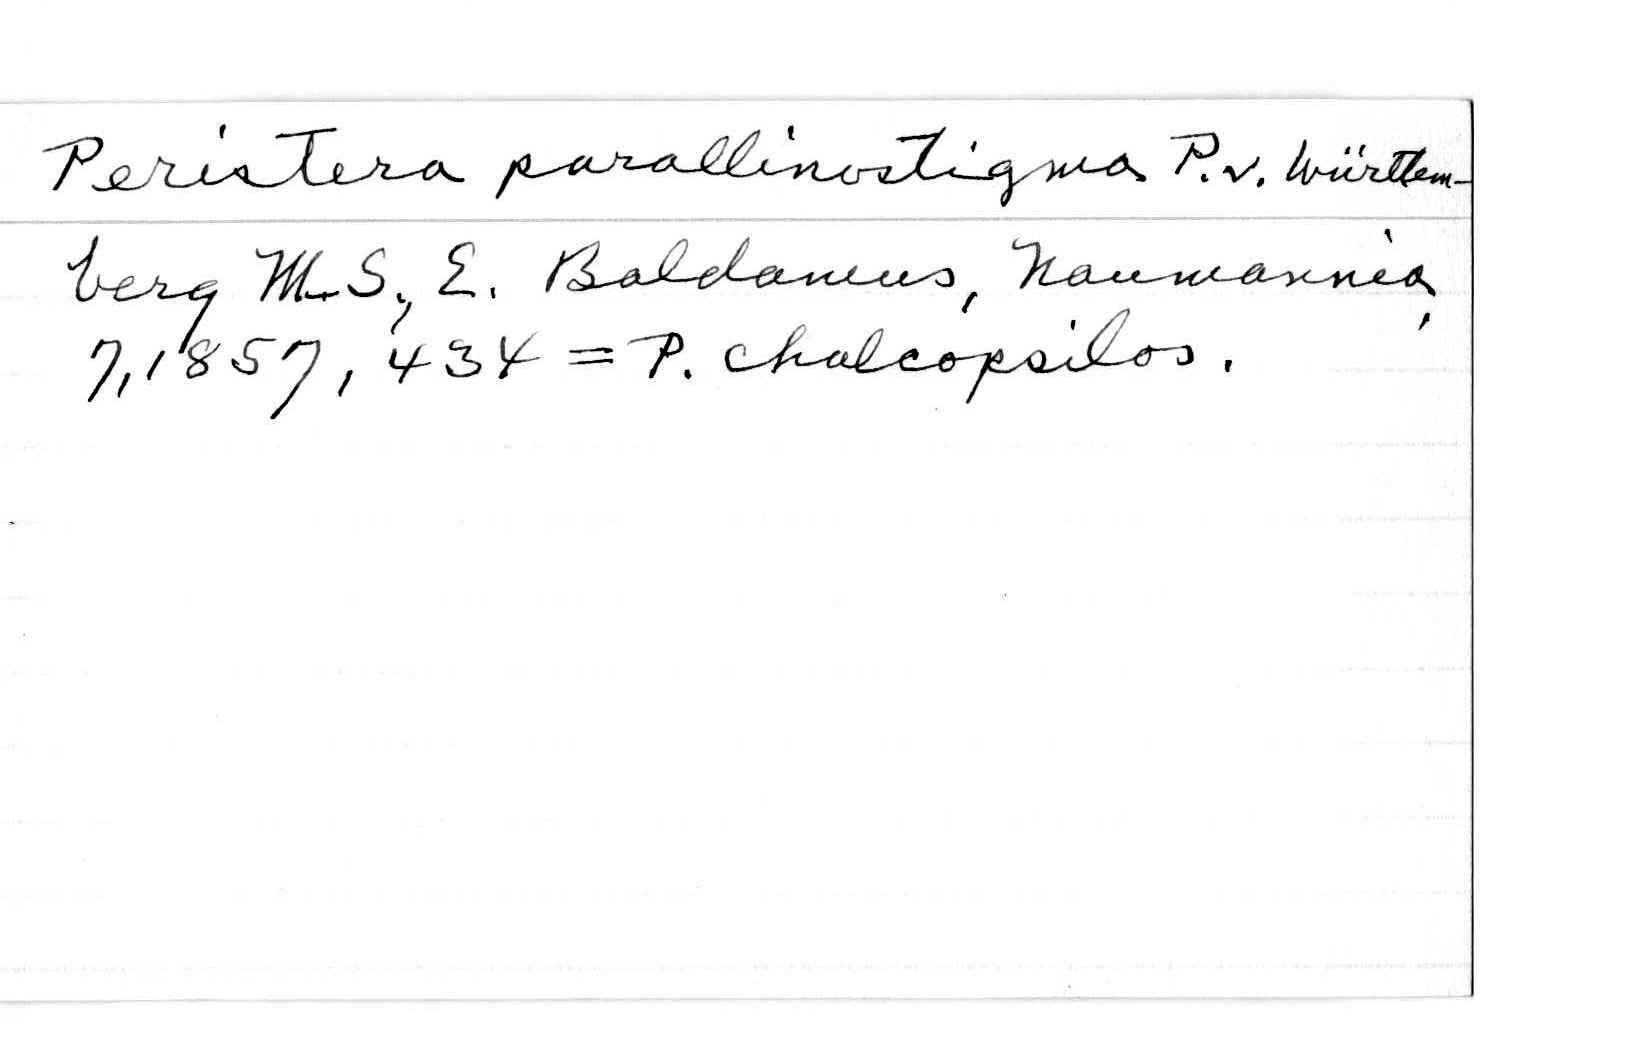 Peristera parallinostigma P. v. Württem-
berg M.S., E. Baldamus, Naumannia,
7, 1857, 434 = P. chalcopsilos.